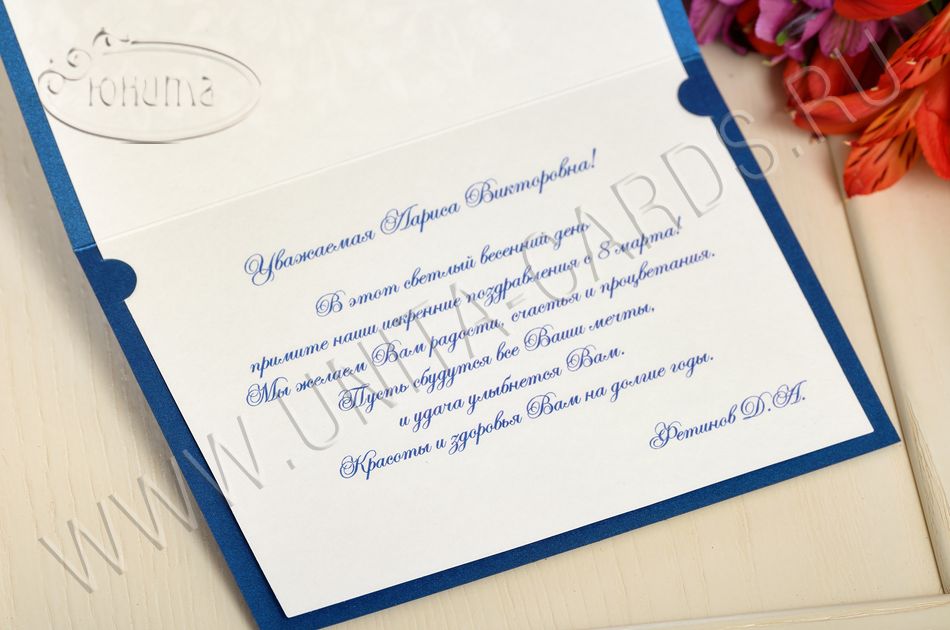 Юнита
Уважаемая Лариса Викторовна!
В этот светлый весенний день
примите наши искренние поздравления с 8 марта!
Мы желаем Вам радости, счастья и процветания.
Пусть сбудутся все Ваши мечты,
и удача улыбнется Вам.
Красоты и здоровья Вам на долгие годы.
Фетинов Д.А.
WWW.UNITA-CARDS.RU